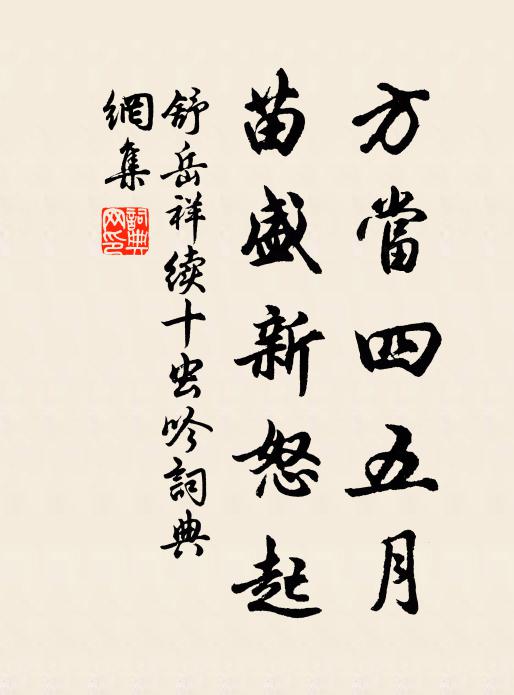 方當四五月
苗盛新怒起
舒岳祥续十虫吟詞典
網集
詞典网印